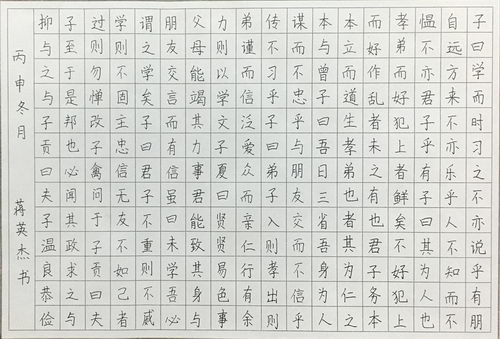 子曰学而时习之不亦说乎有朋
自远方来不亦乐乎人不知而不
愠不亦君子乎有子曰其为人也
孝弟而好犯上者鲜矣不好犯上
而好作乱者未之有也君子务本
本立而道生孝弟也者其为仁之
本与曾子曰吾日三省吾身为人
谋而不忠乎与朋友交而不信乎
传不习乎子曰弟子入则孝出则
弟谨而信泛爱众而亲仁行有余
力则以学文子夏曰贤贤易色事
父母能竭其力事君能致其身与
朋友交言而有信虽曰未学吾必
谓之学矣子曰君子不重则不威
学则不固主忠信无友不如己者
过则勿惮改子禽问于子贡曰夫
子至于是邦也必闻其政求之与
抑与之与子贡曰夫子温良恭俭
丙申冬月 蒋英杰书